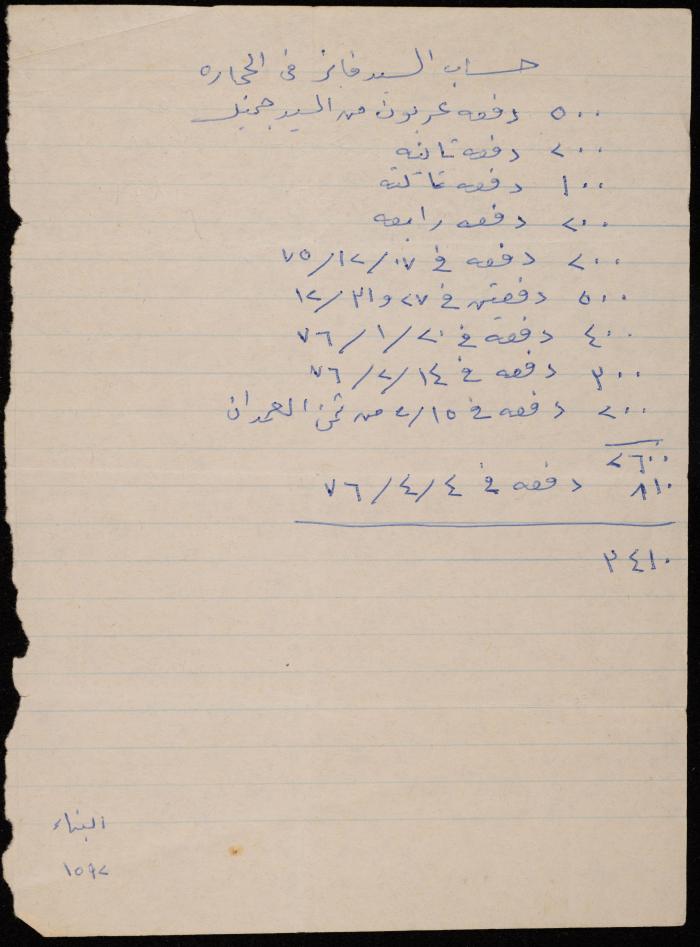 حساب السيد فائز في الحجاره
٥٠٠ دفعه عربون من السيد جميل
٢٠٠ دفعه ثانيه
١٠٠ دفعه ثالثه
٢٠٠ دفعه رابعه
٢٠٠ دفعه في ١٧/١٢/٧٥
٥٠٠ دفعتين في ٢٧ و٣١/١٢
٤٠٠ دفعه في ٢٠/١/٧٦
٣٠٠ دفعه في ١٤/٢/٧٦
٢٠٠ دفعه في ١٥/٢ من ثمن العمدان
٢٦٠٠
٨١٠ دفعه في ٤/٤/٧٦
٣٤١٠
البناء
١٥٩٢